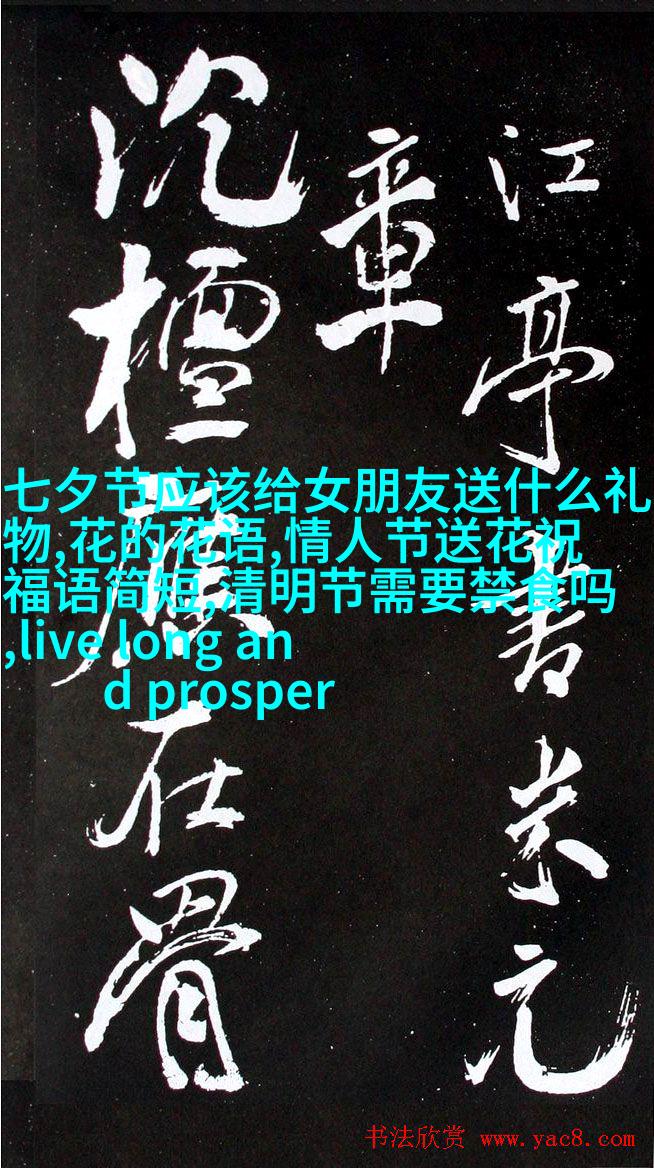 江亭書米元
章
沉檀在骨
七夕节应该给女朋友送什么礼
物,花的花语,情人节送花祝
福语简短,清明节需要禁食吗
,live long an
d prosper
书法欣赏 www.yac8.com